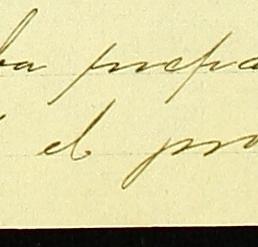 ba prepa
el pro